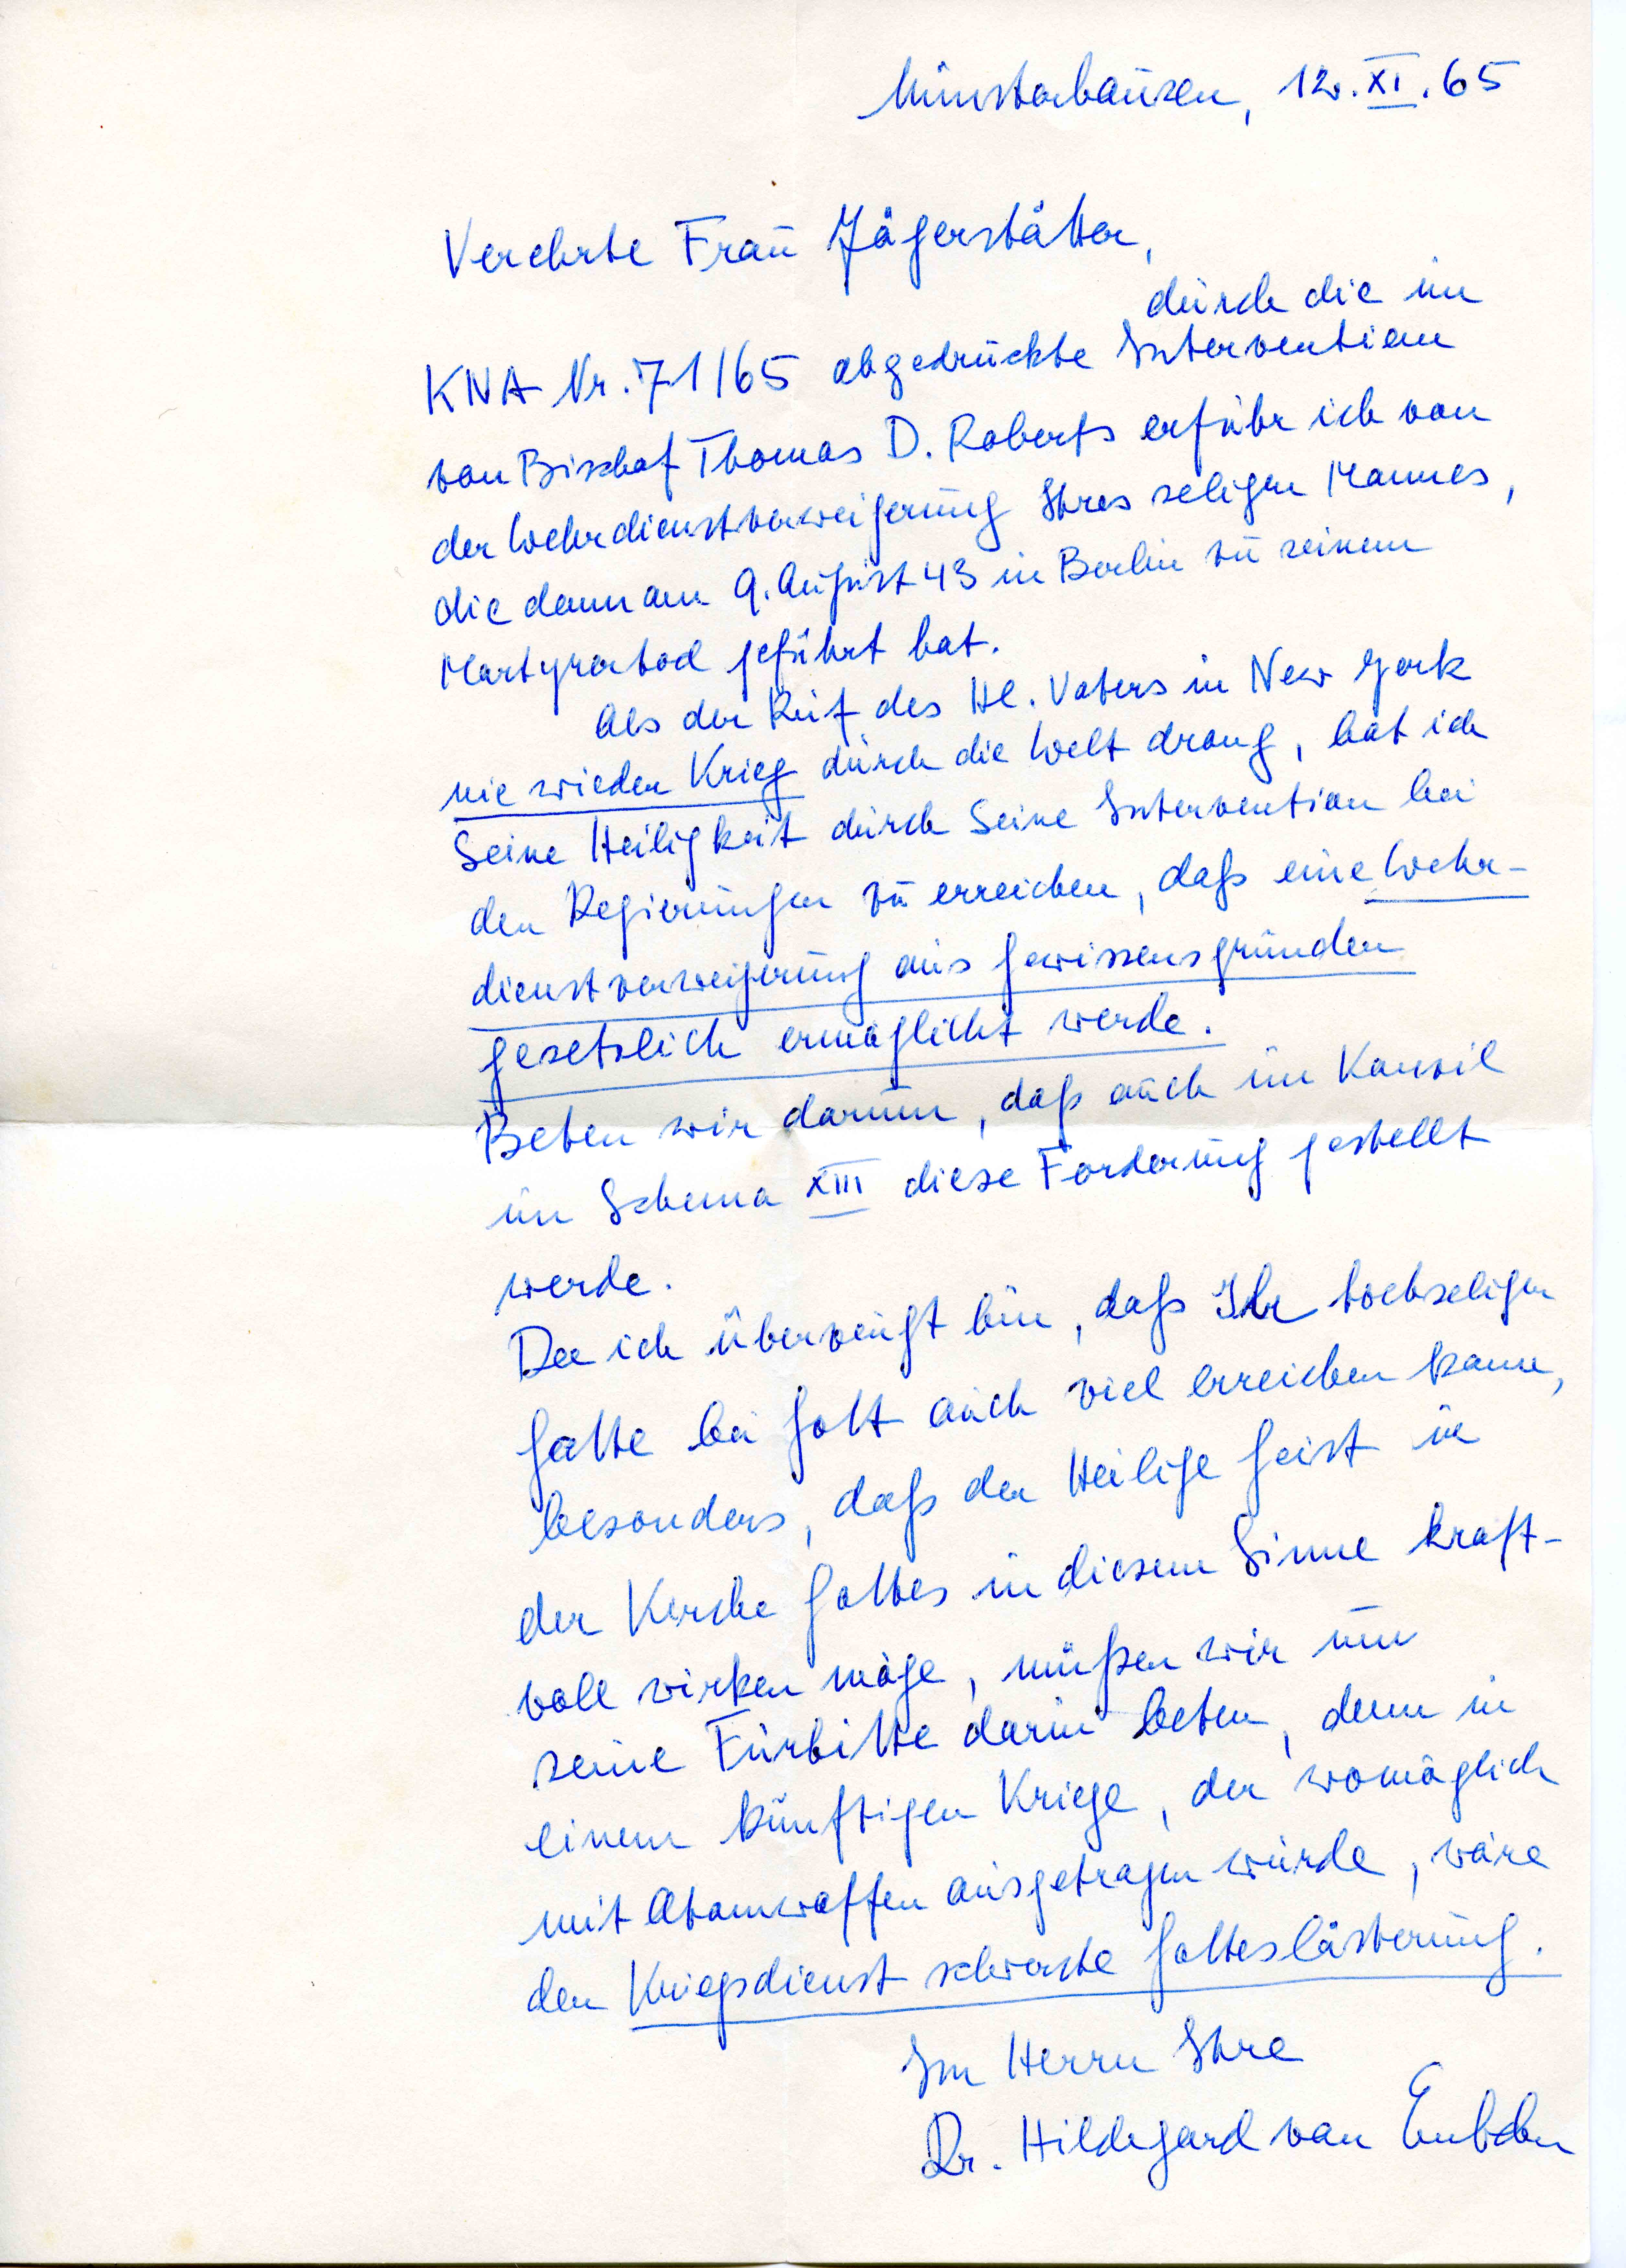 Münsterhausen, 12. XI. 65
Verehrte Frau Jägerstätter,
durch die im
KNA Nr. 71/65 abgedruckte Intervention
von Bischof Thomas D. Roberts erfuhr ich von
der Wehrdienstverweigerung Ihres seligen Mannes,
die dann am 9. August 43 in Berlin zu seinem
Martyrertod geführt hat.
Als der Ruf des Hl. Vaters in New York
nie wieder Krieg durch die Welt drang, bat ich
Seine Heiligkeit durch Seine Intervention bei
den Regierungen zu erreichen, daß eine Wehr-
dienstverweigerung aus Gewissensgründen
gesetzlich ermöglicht werde.
Beten wir darum, daß auch im Konzil
im Schema XIII diese Forderung gestellt
werde.
Da ich überzeugt bin, daß Ihr hochseliger
Gatte bei Gott auch viel erreichen kann,
besonders, daß der Heilige Geist in
der Kirche Gottes in diesem Sinne kraft-
voll wirken möge, müßen wir um
seine Fürbitte darin beten, denn in
einem künftigen Kriege, der womöglich
mit Atomwaffen ausgetragen würde, wäre
der Kriegsdienst schwerste Gotteslästerung.
Im Herrn Ihre
Dr. Hildegard van